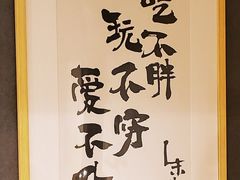 吃不胖
玩不穷
愛不